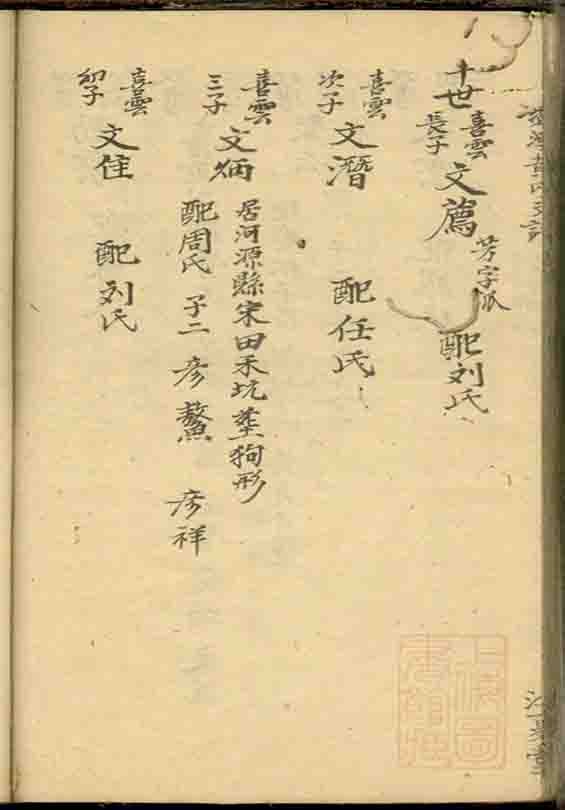 十世
喜雲長子 文薦 芳字派 配刘氏
喜雲次子 文潛 配任氏
喜雲三子 文炳 居河源縣宋田禾坑 狗形
配周氏 子二 彦鰲 彦祥
喜雲幼子 文住 配刘氏